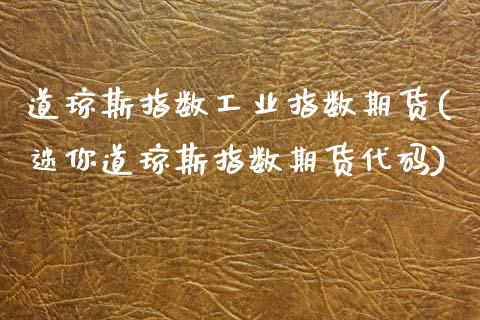 道琼斯指数工业指数期货(
迷你道琼斯指数期货代码)